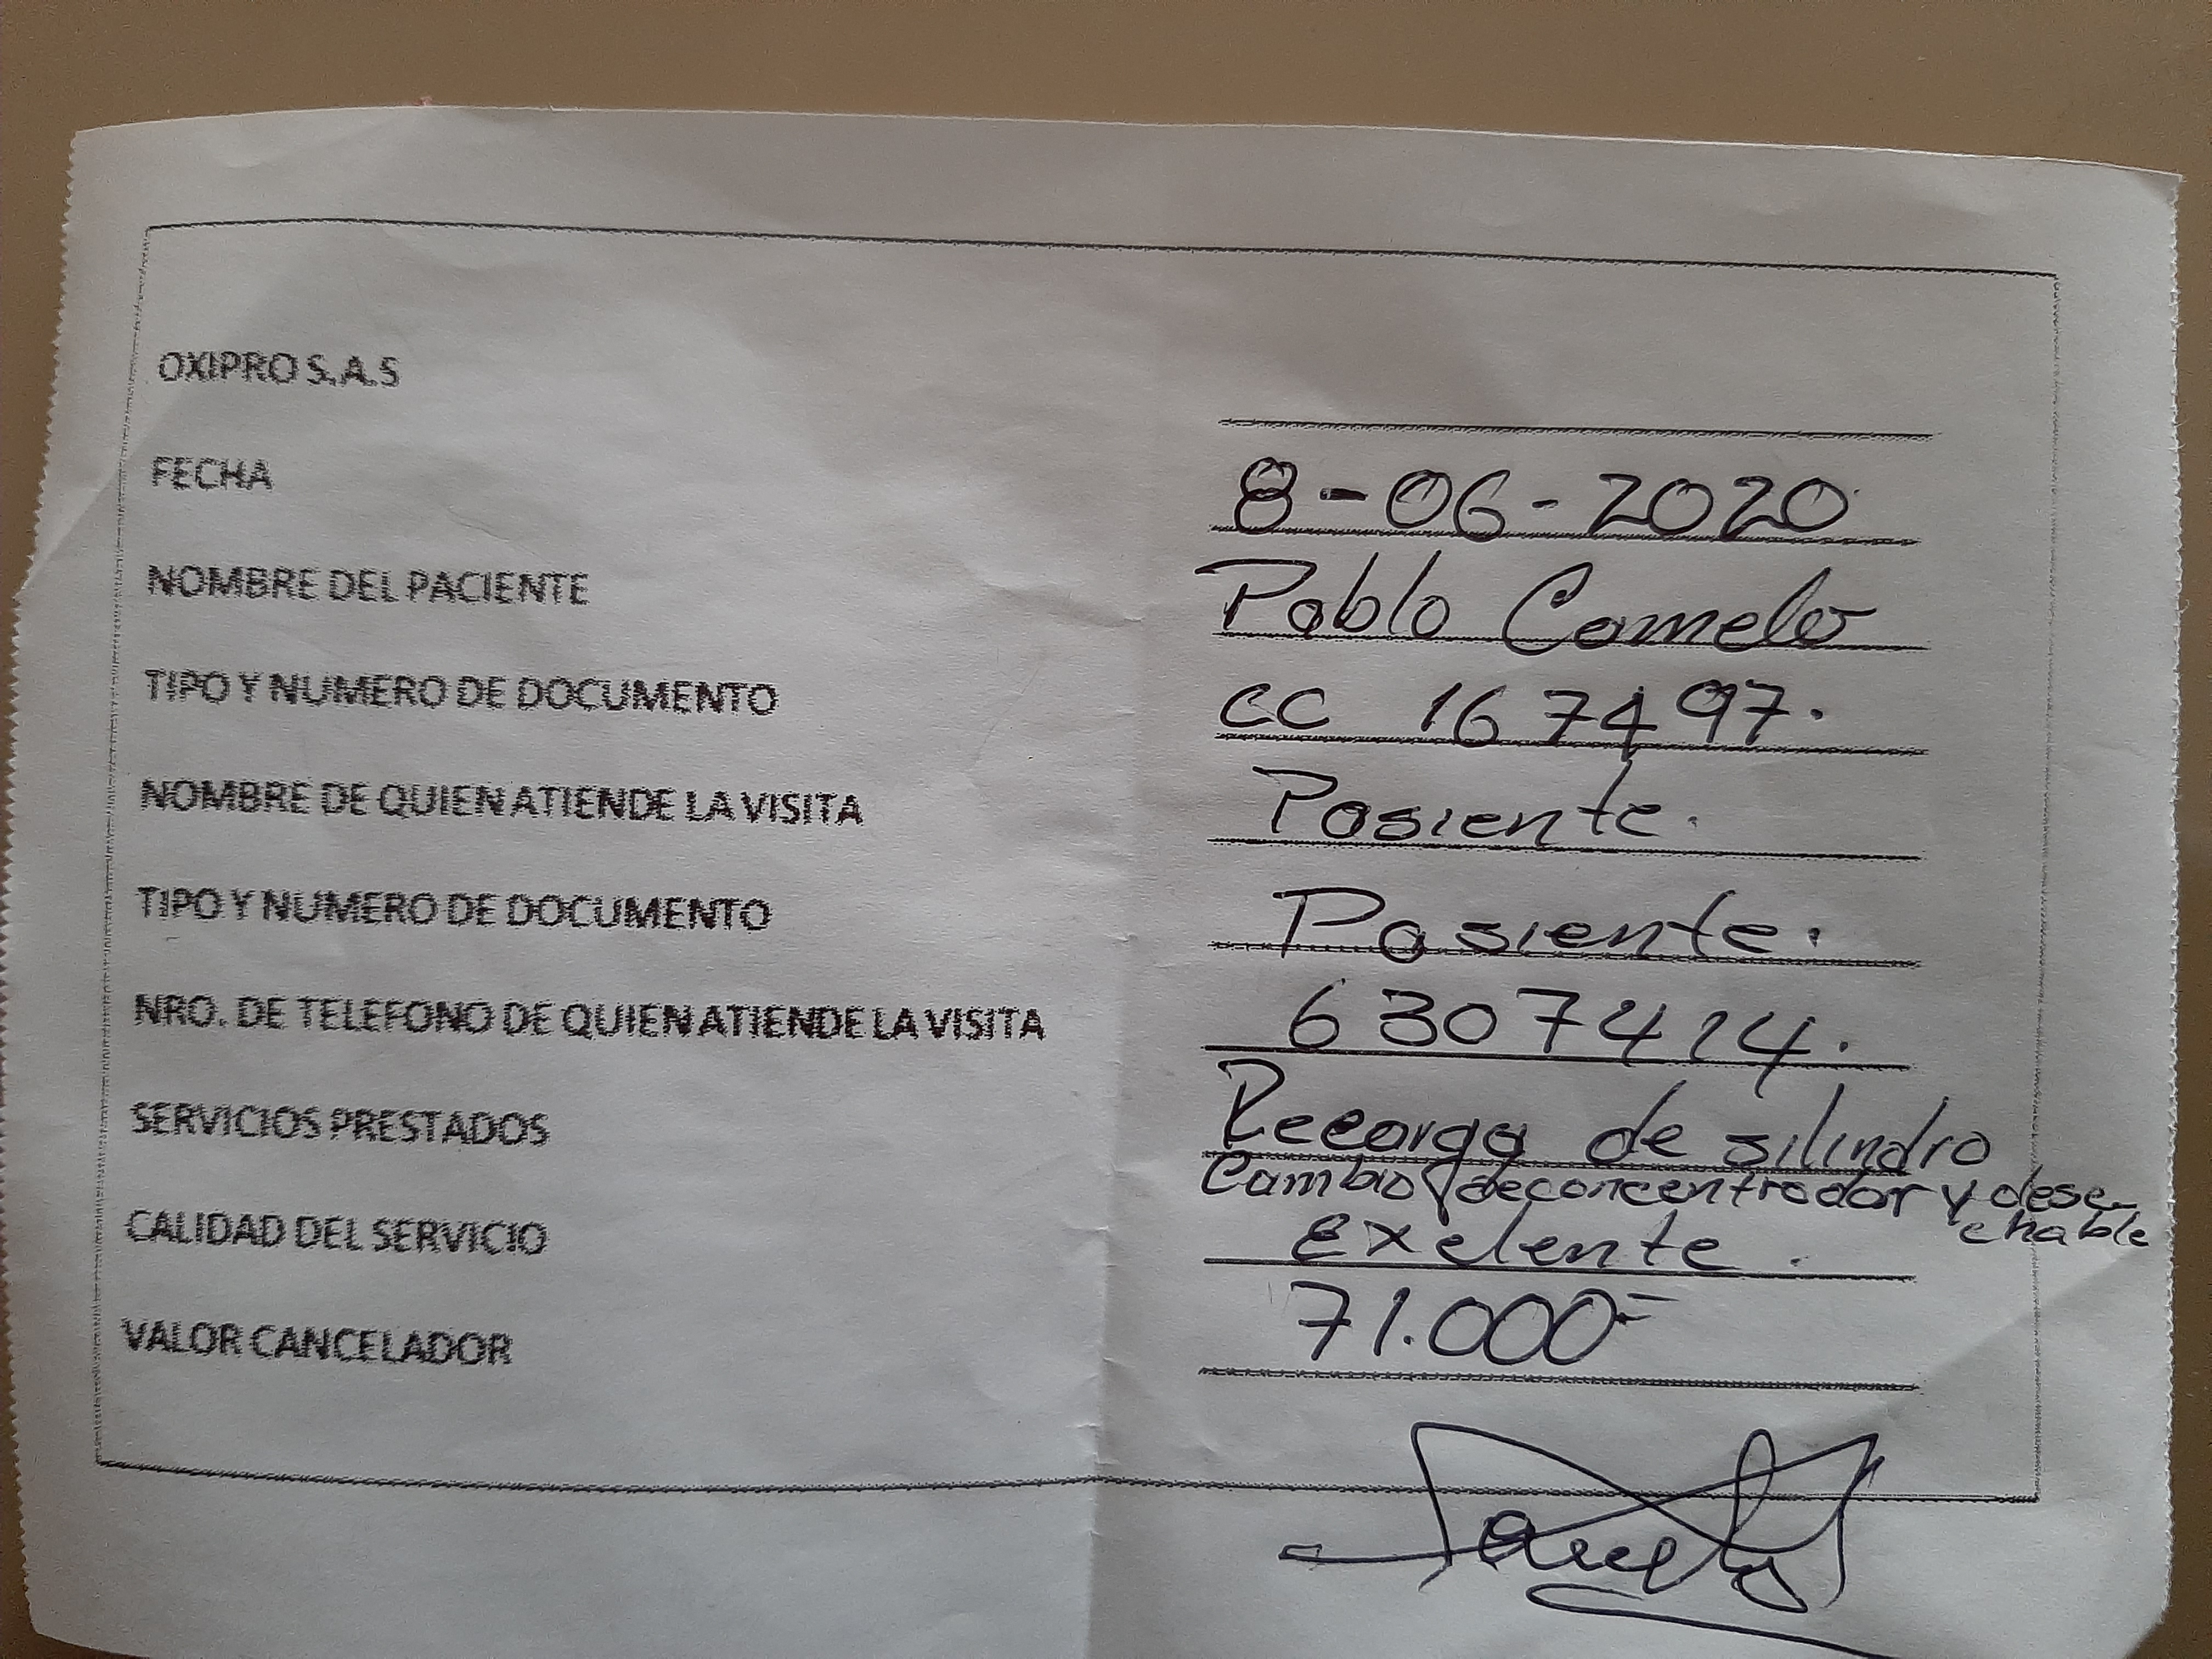 OXIPRO S.A.S
FECHA 8-06-2020
NOMBRE DEL PACIENTE Pablo Camelo
TIPO Y NUMERO DE DOCUMENTO CC 167497.
NOMBRE DE QUIEN ATIENDE LA VISITA Pasiente.
TIPO Y NUMERO DE DOCUMENTO Pasiente.
NRO. DE TELEFONO DE QUIEN ATIENDE LA VISITA 6307414.
SERVICIOS PRESTADOS Recarga de silindro
Cambio de concentrador y dese-
chable
CALIDAD DEL SERVICIO Exelente.
VALOR CANCELADOR 71.000=